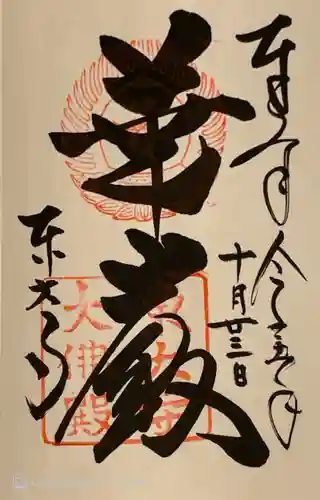 奉拝
令和元年
十月廿三日
華厳
東大寺
東大寺
大佛殿